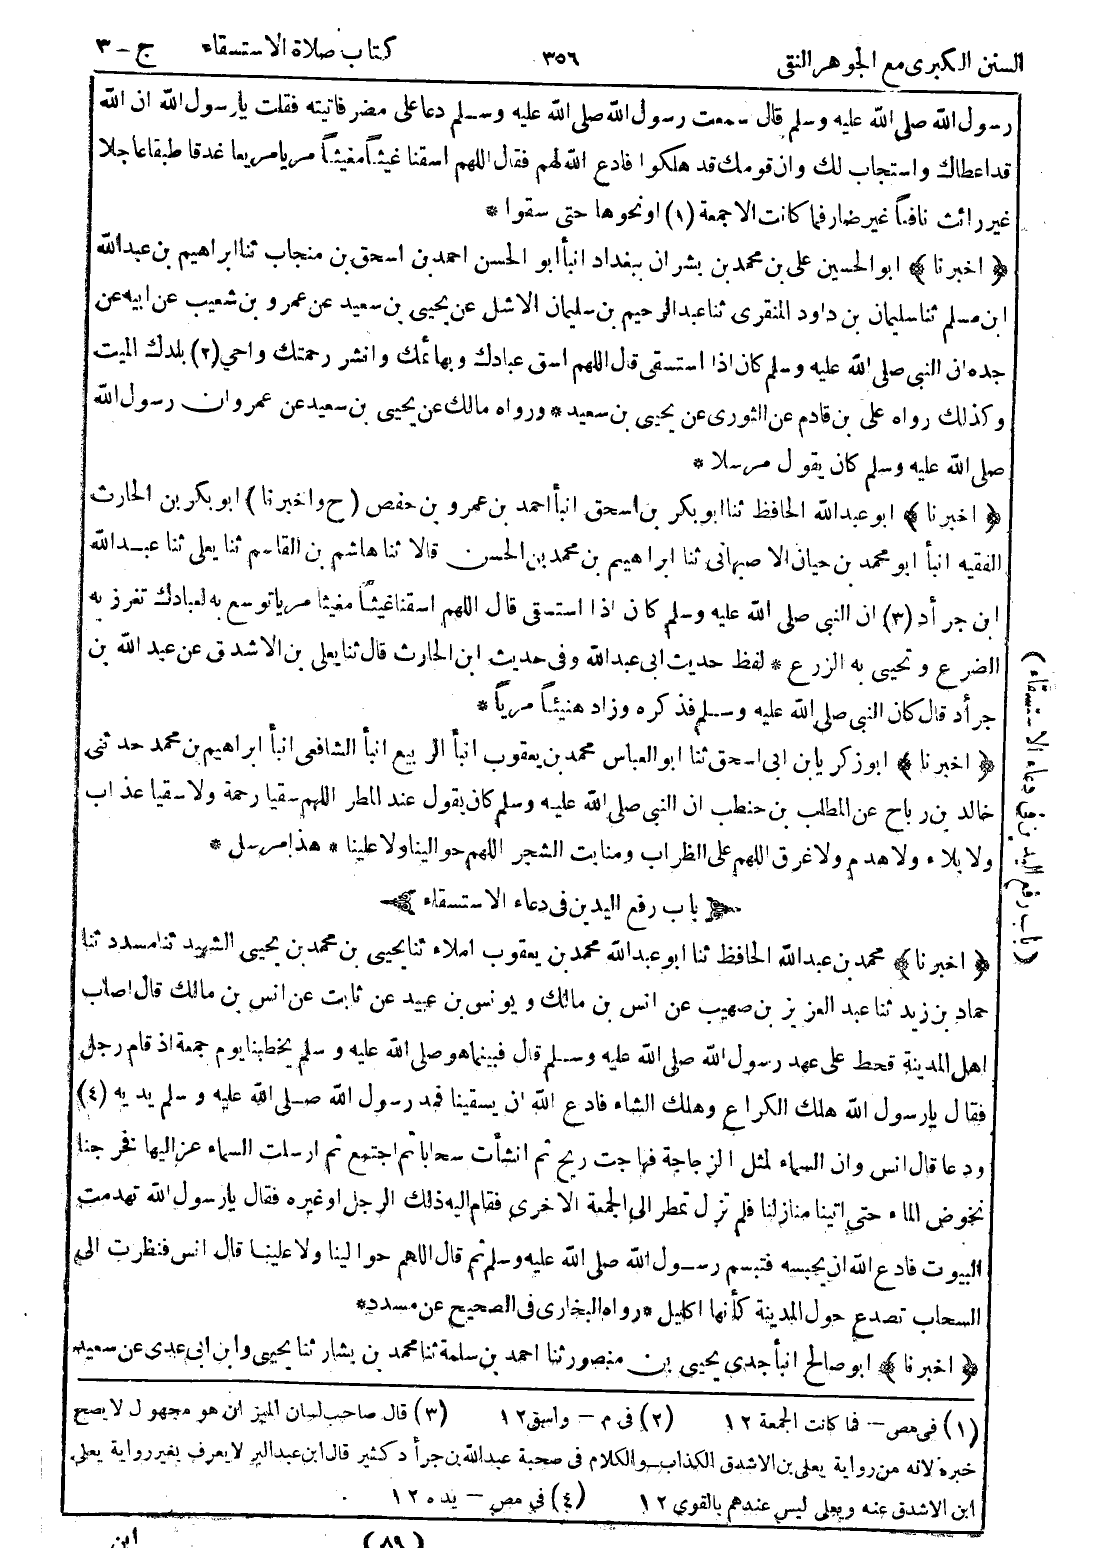 السنن الكبرى مع الجوهر النقى ٣٥٦ كتاب صلاة الاستسقاء ج - ٣
رسول الله صلى الله عليه وسلم قال سمعت رسول الله صلى الله عليه وسلم دعا على مضر فاتيته فقلت يا رسول الله ان الله
قد اعطاك واستجاب لك وان قومك قد هلكوا فادع الله لهم فقال اللهم اسقنا غيثاً مغيثاً مريا مريعا غدقا طبقا عاجلا
غير رائث نافعاً غير ضار فما كانت الا جمعة (١) او نحوها حتى سقوا *
﴿ اخبرنا ﴾ ابو الحسين على بن محمد بن بشران ببغداد انبأ ابو الحسن احمد بن اسحق بن منجاب ثنا ابراهيم بن عبد الله
ابن مسلم ثنا سليمان بن داود المنقرى ثنا عبد الرحيم بن سليمان الاشل عن يحيى بن سعيد عن عمرو بن شعيب عن ابيه عن
جده ان النبى صلى الله عليه وسلم كان اذا استسقى قال اللهم اسق عبادك وبهائمك وانشر رحمتك واحي (٢) بلدك الميت
وكذلك رواه على بن قادم عن الثورى عن يحيى بن سعيد * ورواه مالك عن يحيى بن سعيد عن عمرو ان رسول الله
صلى الله عليه وسلم كان يقول مرسلا *
﴿ اخبرنا ﴾ ابو عبد الله الحافظ ثنا ابو بكر بن اسحق انبأ احمد بن عمرو بن حفص (ح واخبرنا) ابو بكر بن الحارث
الفقيه انبأ ابو محمد بن حيان الاصبهانى ثنا ابراهيم بن محمد بن الحسن قالا ثنا هاشم بن القاسم ثنا يعلى ثنا عبد الله
ابن جراد (٣) ان النبى صلى الله عليه وسلم كان اذا استسقى قال اللهم اسقنا غيثاً مغيثا مريا توسع به لعبادك تغزر به
الضرع وتحيى به الزرع * لفظ حديث ابى عبد الله وفى حديث ابن الحارث قال ثنا يعلى بن الاشدق عن عبد الله بن
جراد قال كان النبى صلى الله عليه وسلم فذكره وزاد هنيئاً مرياً *
﴿ اخبرنا ﴾ ابو زكريا بن ابى اسحق ثنا ابو العباس محمد بن يعقوب انبأ الربيع انبأ الشافعى انبأ ابراهيم بن محمد حدثنى
خالد بن رباح عن المطلب بن حنطب ان النبى صلى الله عليه وسلم كان يقول عند المطر اللهم سقيا رحمة ولا سقيا عذاب
ولا بلاء ولا هدم ولا غرق اللهم على الظراب ومنابت الشجر اللهم حوالينا ولا علينا * هذا مرسل *
باب رفع اليدين فى دعاء الاستسقاء
(باب رفع اليدين فى دعاء الاستسقاء)
﴿ اخبرنا ﴾ محمد بن عبد الله الحافظ ثنا ابو عبد الله محمد بن يعقوب املاء ثنا يحيى بن محمد بن يحيى الشهيد ثنا مسدد ثنا
حماد بن زيد ثنا عبد العزيز بن صهيب عن انس بن مالك و يونس بن عبيد عن ثابت عن انس بن مالك قال اصاب
اهل المدينة قحط على عهد رسول الله صلى الله عليه وسلم قال فبينما هو صلى الله عليه وسلم يخطبنا يوم جمعة اذ قام رجل
فقال يا رسول الله هلك الكراع وهلك الشاء فادع الله ان يسقينا فمد رسول الله صلى الله عليه وسلم يديه (٤)
ودعا قال انس وان السماء لمثل الزجاجة فهاجت ريح ثم انشأت سحابا ثم اجتمع ثم ارسلت السماء عزاليها فخرجنا
نخوض الماء حتى اتينا منازلنا فلم تزل تمطر الى الجمعة الاخرى فقام اليه ذلك الرجل او غيره فقال يا رسول الله تهدمت
البيوت فادع الله ان يحبسه فتبسم رسول الله صلى الله عليه وسلم ثم قال اللهم حوالينا ولا علينا قال انس فنظرت الى
السحاب تصدع حول المدينة كأنها اكليل * رواه البخارى فى الصحيح عن مسدد *
﴿ اخبرنا ﴾ ابو صالح انبأ جدى يحيى بن منصور ثنا احمد بن سلمة ثنا محمد بن بشار ثنا يحيى وابن ابى عدى عن سعيد
(١) فى مص - فما كانت الجمعة ١٢ (٢) فى م - واسق ١٢ (٣) قال صاحب لسان الميزان هو مجهول لا يصح
خبره لانه من رواية يعلى بن الاشدق الكذاب والكلام فى صحبة عبد الله بن جراد كثير قال ابن عبد البر لا يعرف بغير رواية يعلى
ابن الاشدق عنه ويعلى ليس عندهم بالقوى ١٢ (٤) في مص - يده ١٢
(٨٩) ابن